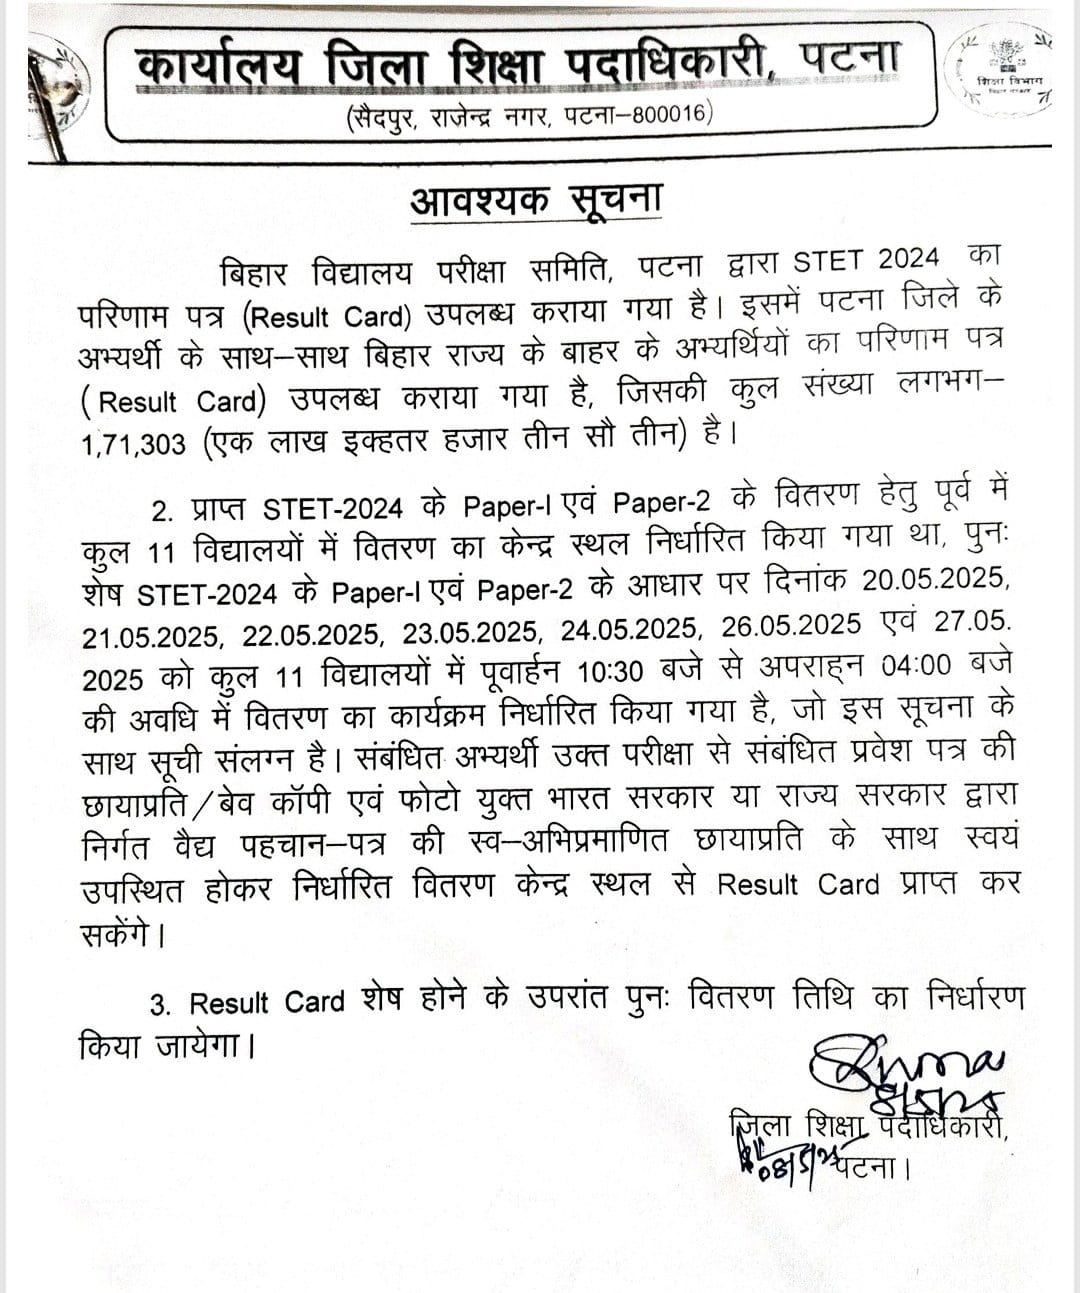 कार्यालय जिला शिक्षा पदाधिकारी, पटना
(सैदपुर, राजेन्द्र नगर, पटना–800016)
शिक्षा विभाग
आवश्यक सूचना
बिहार विद्यालय परीक्षा समिति, पटना द्वारा STET 2024 का
परिणाम पत्र (Result Card) उपलब्ध कराया गया है। इसमें पटना जिले के
अभ्यर्थी के साथ–साथ बिहार राज्य के बाहर के अभ्यर्थियों का परिणाम पत्र
( Result Card) उपलब्ध कराया गया है, जिसकी कुल संख्या लगभग–
1,71,303 (एक लाख इक्हतर हजार तीन सौ तीन) है।
2. प्राप्त STET-2024 के Paper-I एवं Paper-2 के वितरण हेतु पूर्व में
कुल 11 विद्यालयों में वितरण का केन्द्र स्थल निर्धारित किया गया था, पुनः
शेष STET-2024 के Paper-I एवं Paper-2 के आधार पर दिनांक 20.05.2025,
21.05.2025, 22.05.2025, 23.05.2025, 24.05.2025, 26.05.2025 एवं 27.05.
2025 को कुल 11 विद्यालयों में पूवार्हन 10:30 बजे से अपराह्न 04:00 बजे
की अवधि में वितरण का कार्यक्रम निर्धारित किया गया है, जो इस सूचना के
साथ सूची संलग्न है। संबंधित अभ्यर्थी उक्त परीक्षा से संबंधित प्रवेश पत्र की
छायाप्रति/बेव कॉपी एवं फोटो युक्त भारत सरकार या राज्य सरकार द्वारा
निर्गत वैद्य पहचान–पत्र की स्व–अभिप्रमाणित छायाप्रति के साथ स्वयं
उपस्थित होकर निर्धारित वितरण केन्द्र स्थल से Result Card प्राप्त कर
सकेंगे।
3. Result Card शेष होने के उपरांत पुनः वितरण तिथि का निर्धारण
किया जायेगा।
जिला शिक्षा पदाधिकारी,
पटना।